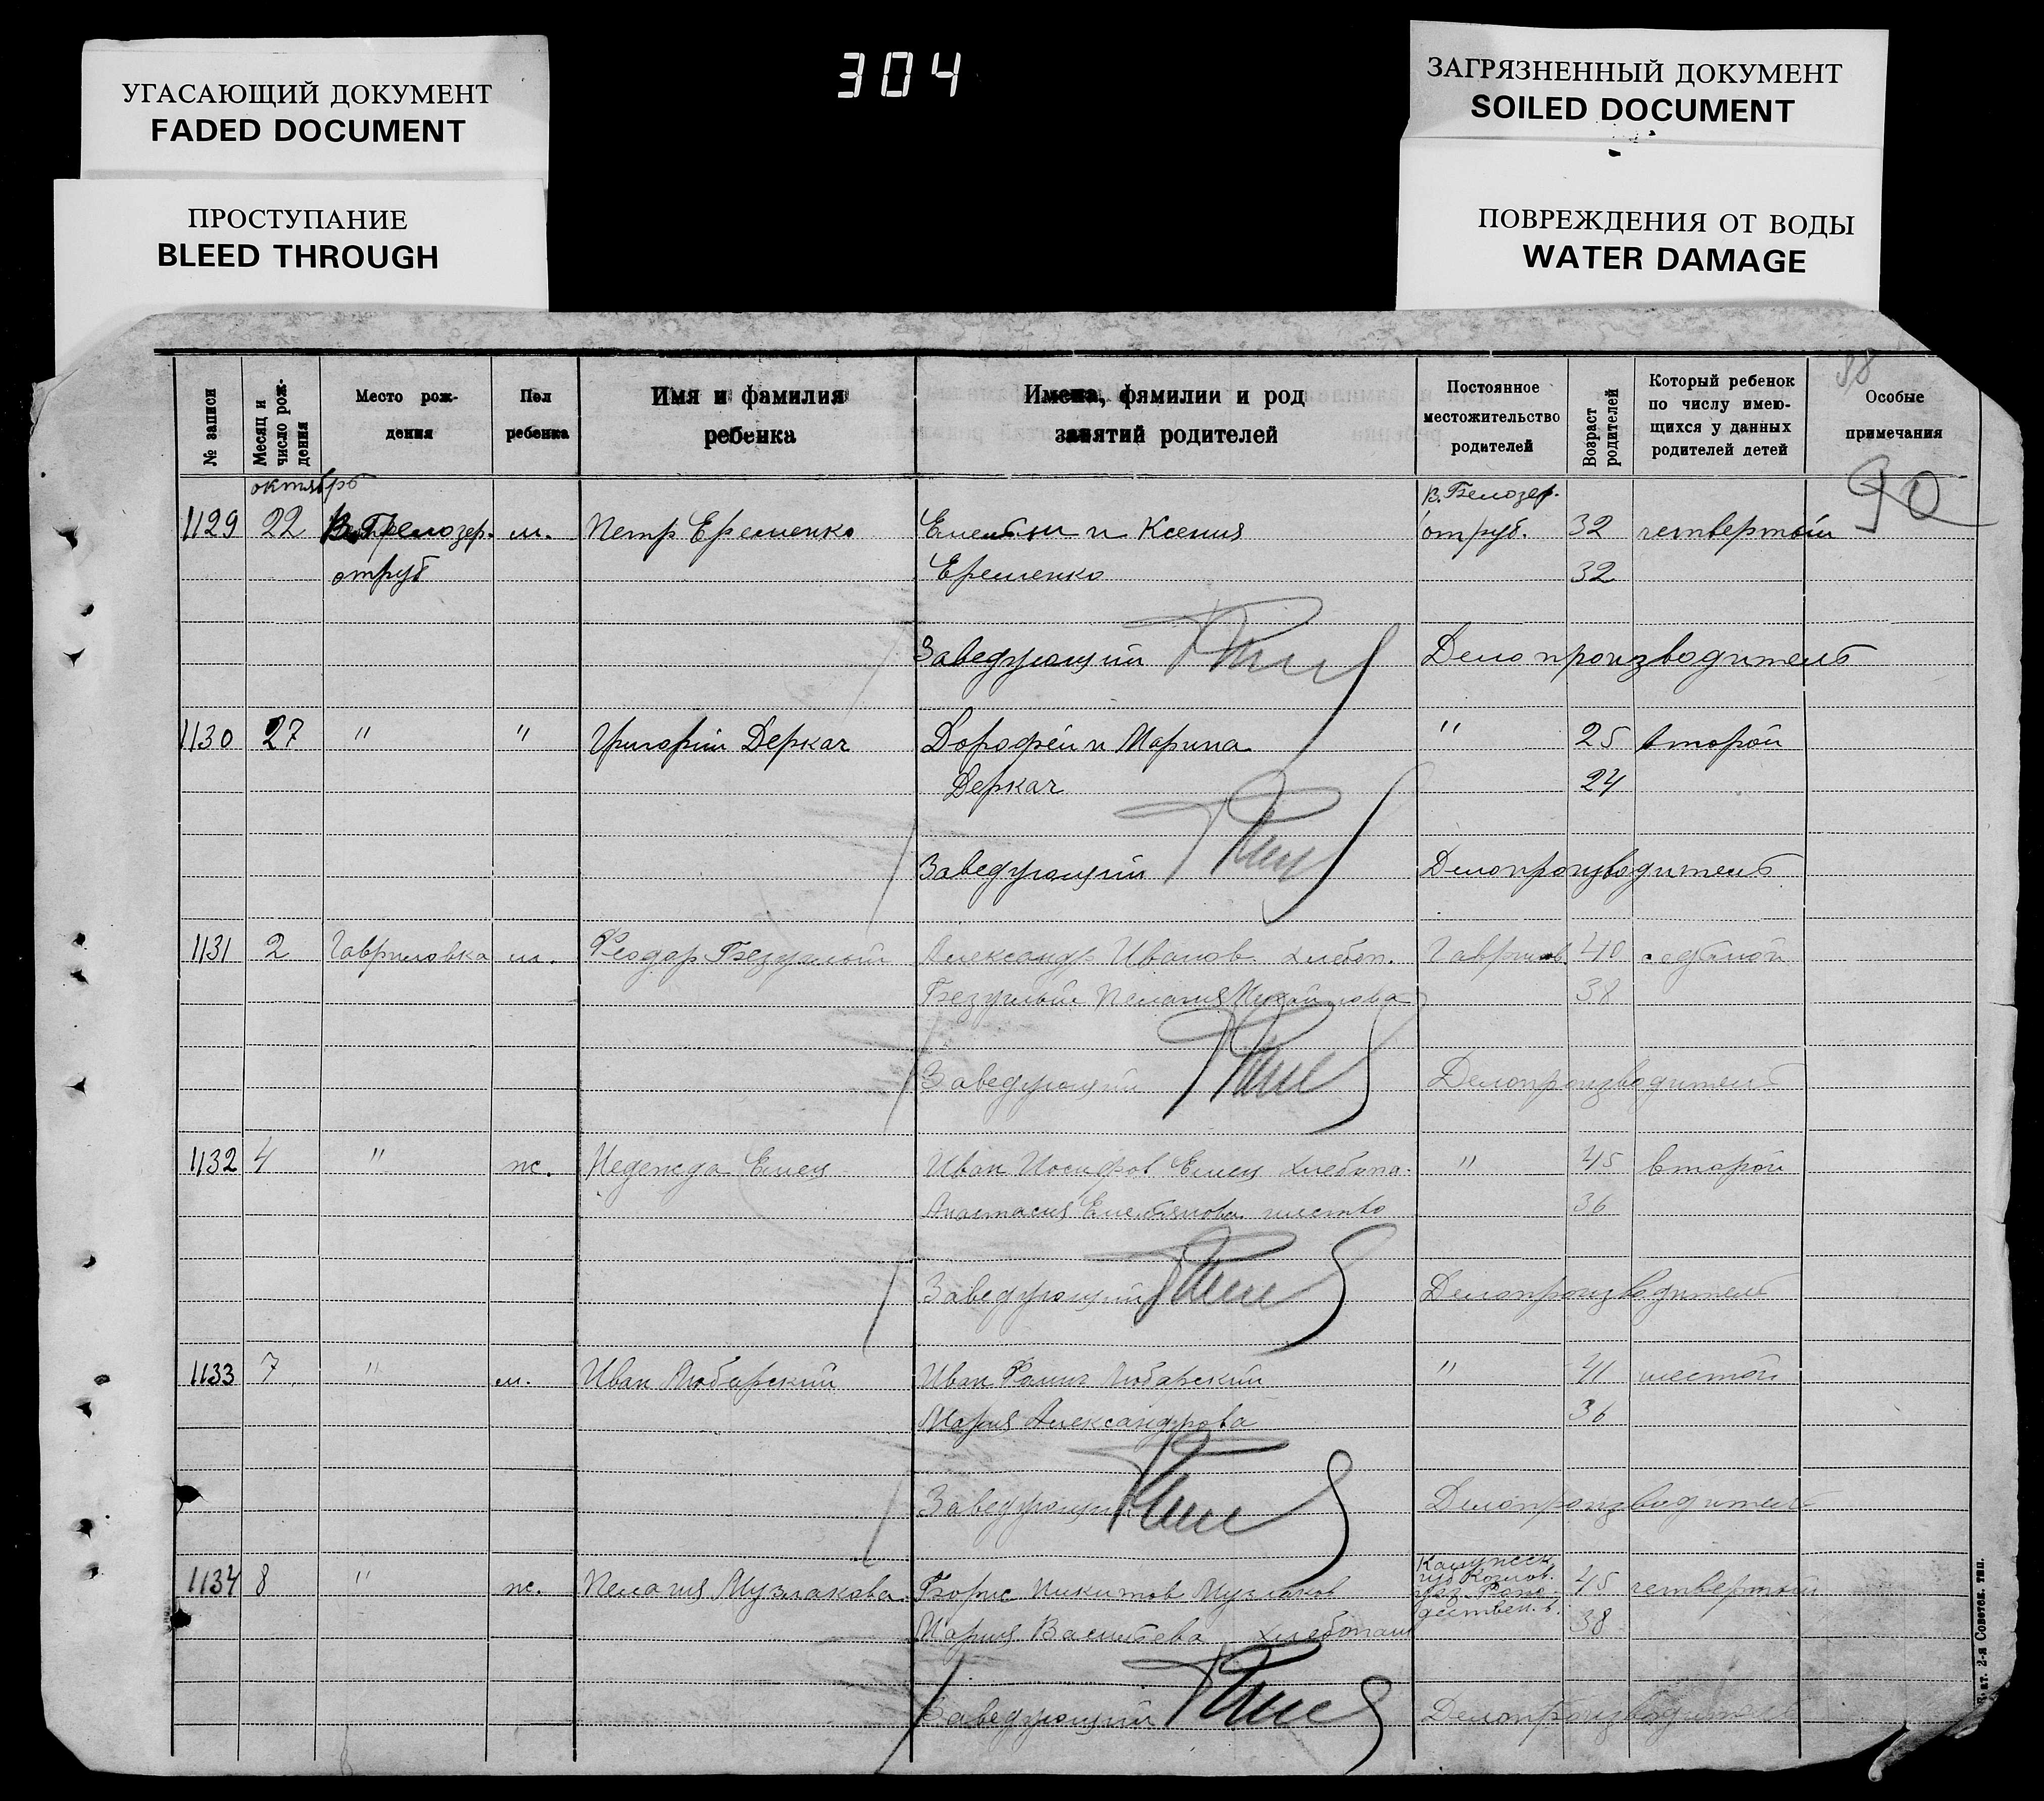 304
УГАСАЮЩИЙ ДОКУМЕНТ
FADED DOCUMENT
ПРОСТУПАНИЕ
BLEED THROUGH
ЗАГРЯЗНЕННЫЙ ДОКУМЕНТ
SOILED DOCUMENT
ПОВРЕЖДЕНИЯ ОТ ВОДЫ
WATER DAMAGE
98
№ записи
Месяц и число рож-дения
Место рож-дения
Пол ребенка
Имя и фамилия ребенка
Имена, фамилии и род занятий родителей
Постоянное местожительство родителей
Возраст родителей
Который ребенок по числу имею-щихся у данных родителей детей
Особые примечания
90
октябрь
В. Белозер.
1129 22 В. Белозер. м. Петр Еременко Емельян и Ксения отруб. 32 четвертый
отруб Еременко 32
Заведующий Делопроизводитель
1130 27 " " Григорий Деркач Дорофей и Марина " 25 второй
Деркач 24
Заведующий Делопроизводитель
1131 2 Гавриловка м. Феодор Безумный Александр Иванов хлебоп. Гаврилов. 40 седьмой
Безумный Пелагия Михайлова 38
Заведующий Делопроизводитель
1132 4 " ж. Надежда Емец Иван Иосифов Емец хлебопа- " 45 второй
Анастасия Емельянова шество 36
Заведующий Делопроизводитель
1133 7 " м. Иван Любарский Иван Фомич Любарский " 41 шестой
Мария Александрова 36
Заведующий Делопроизводитель
Калужск.
губ. Козлов.
1134 8 " ж. Пелагия Музлакова Борис Никитов Музлаков уез. Рож- 45 четвертый
дествен. в.
Мария Васильева хлебопаш 38
Заведующий Делопроизводитель
2-я Советск. тип.